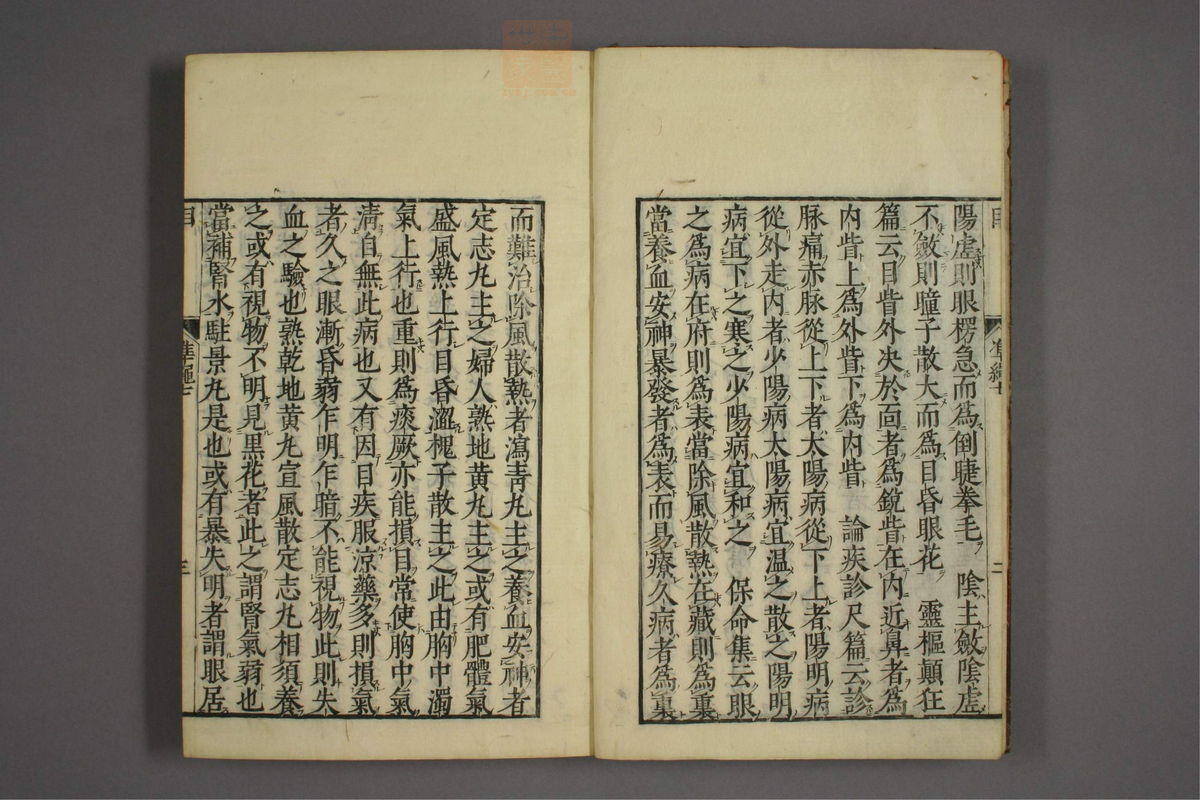 陽虛則眼楞急而爲倒睫拳毛　陰主斂陰虛
不斂則瞳子散大而爲目昏眼花　靈樞顛狂
篇云目眥外决於面者爲銳眥在内近鼻者爲
内眥上爲外眥下爲内眥　論疾診尺篇云診
脉痛赤脉從上下者太陽病從下上者陽明病
從外走内者少陽病太陽病宜温之散之陽明
病宜下之寒之少陽病宜和之　保命集云眼
之爲病在府則爲表當除風散熱在藏則爲裏
當養血安神暴發者爲表而易療久病者爲裏
二
而難治除風散熱者瀉靑丸主之養血安神者
定志丸主之婦人熟地黄丸主之或有肥體氣
盛風熱上行目昏澀槐子散主之此由胸中濁
氣上行也重則爲痰厥亦能損目常使胸中氣
清自無此病也又有因目疾服涼藥多則損氣
者久之眼漸昏弱乍明乍暗不能視物此則失
血之驗也熟乾地黄丸宣風散定志丸相須養
之或有視物不明見黒花者此之謂腎氣弱也
當補腎水駐景丸是也或有暴失明者謂眼居
三